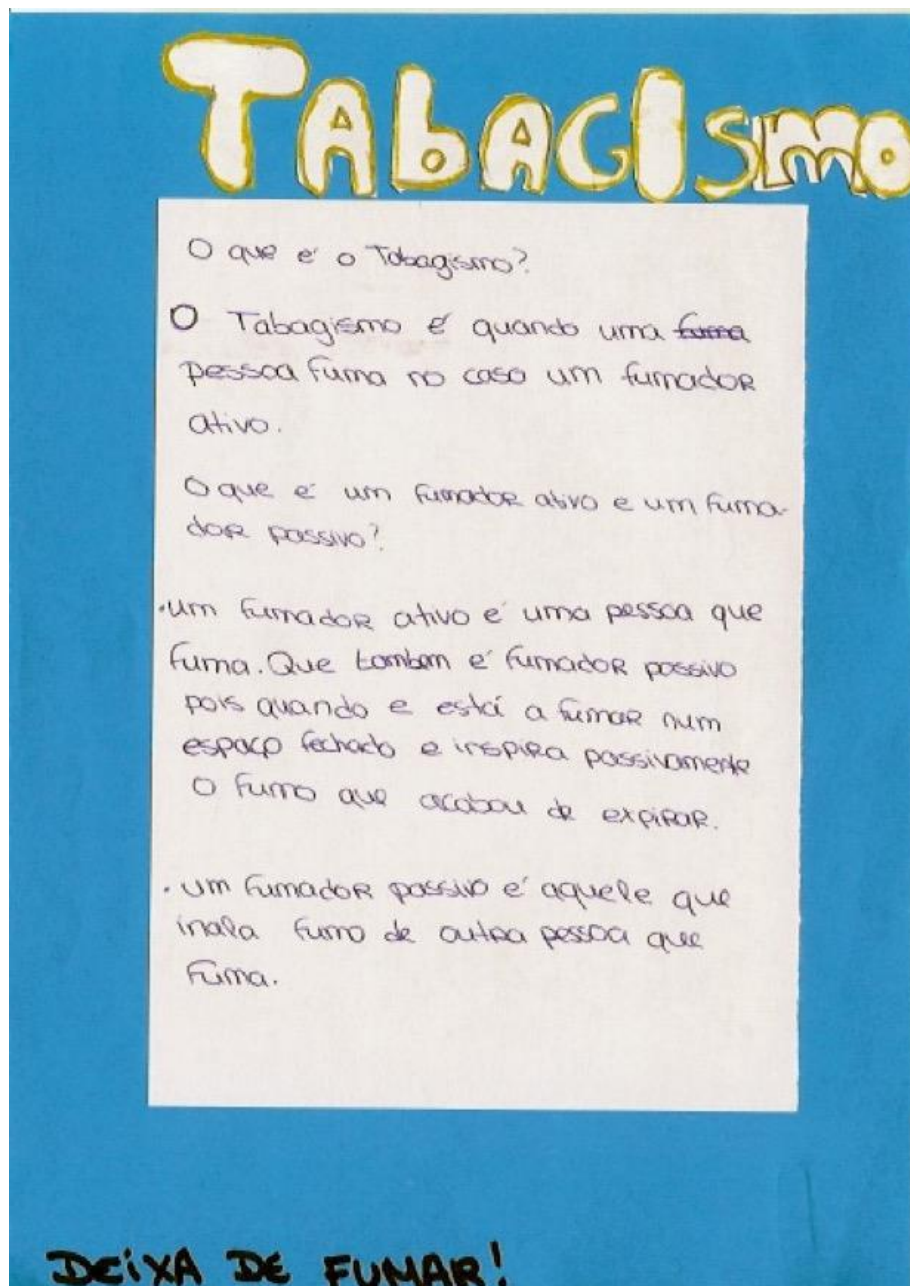 TAbAGISmo
O que é o Tabagismo?
O Tabagismo é quando uma fuma
pessoa fuma no caso um fumador
ativo.
O que é um fumador ativo e um fuma-
dor passivo?
·um fumador ativo é uma pessoa que
fuma. Que tambem é fumador passivo
pois quando e está a fumar num
espaço fechado e inspira passivamente
o fumo que acabou de expirar.
·um fumador passivo é aquele que
inala fumo de outra pessoa que
fuma.
DEiXA DE FUMAR!